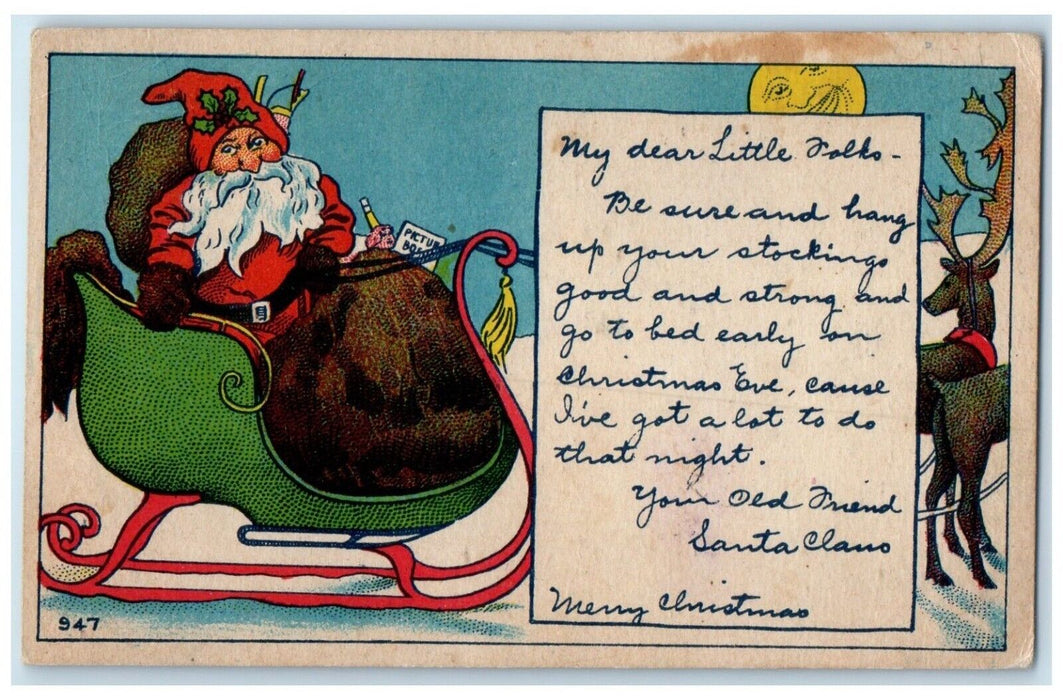 My dear Little Folks-
Be sure and hang
up your stockings
good and strong and
go to bed early on
Christmas Eve, cause
I've got a lot to do
that night.
Your Old Friend
Santa Claus
Merry Christmas
PICTURE
BO
947